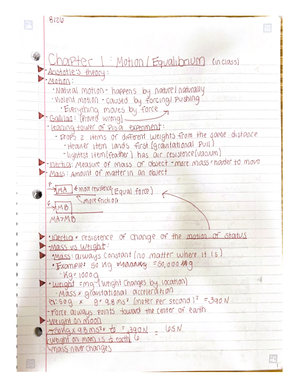 BIOU
Chapter 1: Motion/Equilibrium (in class)
Aristotle's theory:
Motion:
· Natural motion - happens by nature/naturally
· Violent motion - caused by forcing/pushing
· Everything moves by force
Galileo: (proved wrong)
leaning tower of Pisa experiment:
· Drops 2 items of different weights from the same distance
· Heavier item lands first (gravitational pull)
· lightest item (feather) has air resistance (vacuum)
Inertia: Measure of mass of object - more mass = harder to move
Mass: Amount of matter in an object
MA → Max reacting (equal force)
more friction
MB
MA>MB
Inertia = resistence of change of the motion of status
Mass vs Weight:
· Mass: always constant (no matter where it is)
· Example: 50 Kg = 50,000
Kg = 1000g
· Weight = mg (weight changes by location)
Mass x gravitational acceleration
9.8 m/s² (meter per second)² = 390N
· Force always points toward the center of earth
Weight on moon
= 65N
Weight on moon is 1/6 earth
mass never changes